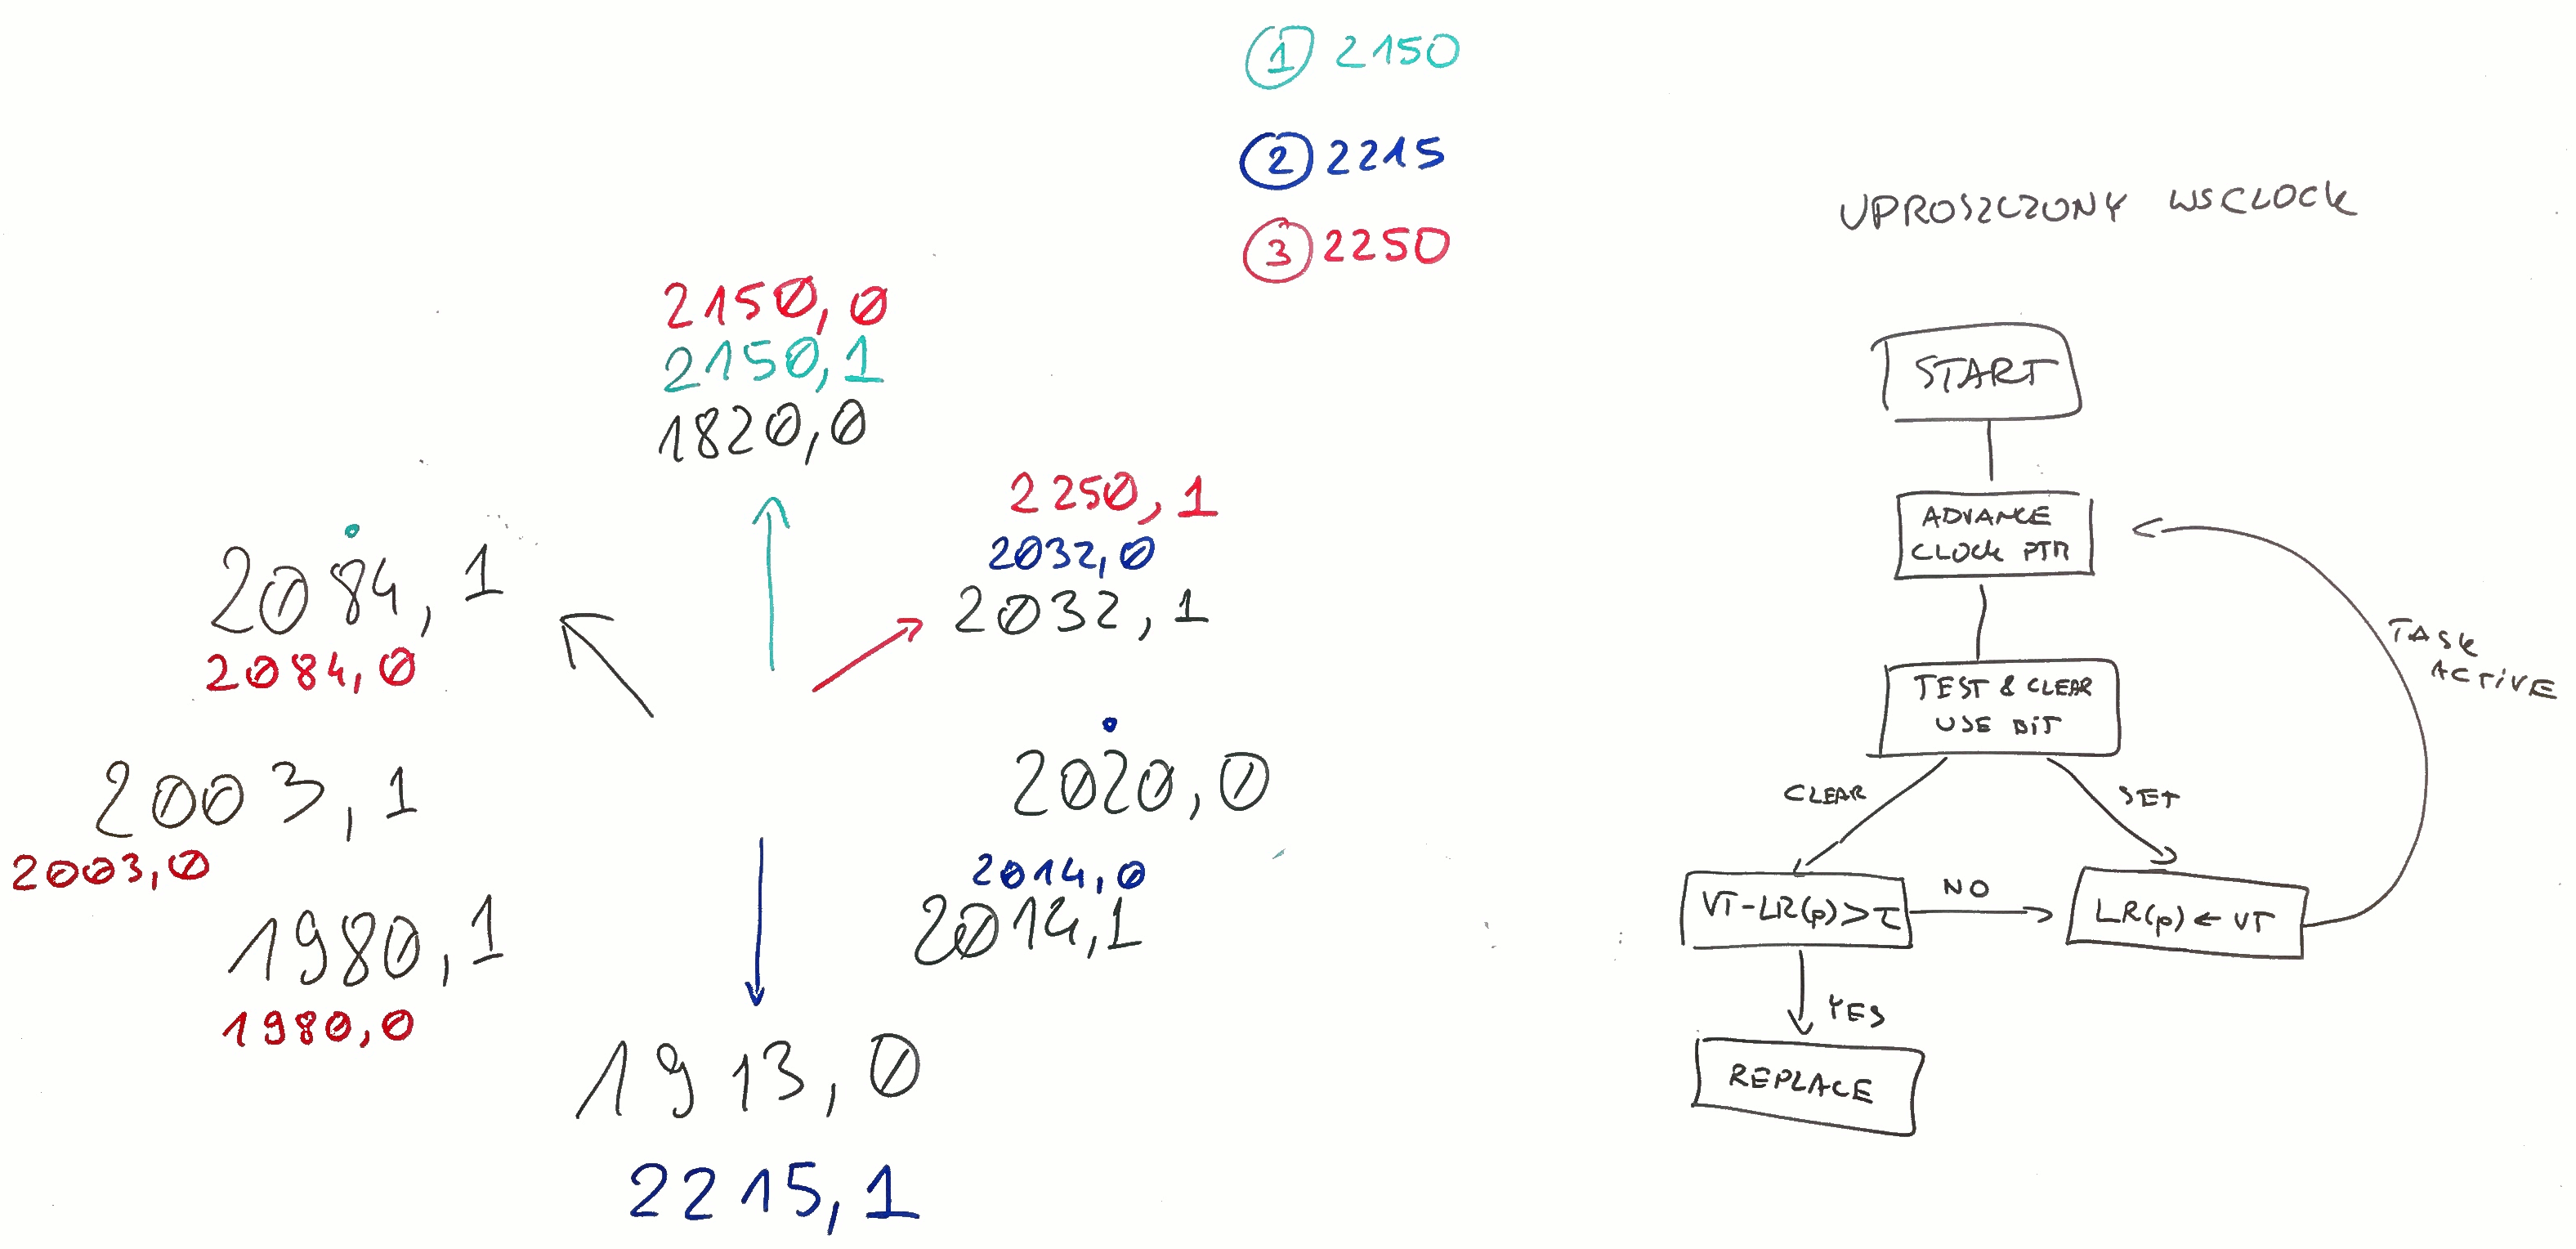 ① 2150
② 2215
③ 2250
UPROSZCZONY WSCLOCK
2150, 0
2150, 1
1820, 0
2250, 1
2032, 0
2032, 1
2084, 1
2084, 0
2020, 0
2003, 1
2003, 0
2014, 0
2014, 1
1980, 1
1980, 0
1913, 0
2215, 1
START
ADVANCE
CLOCK PTR
TASK
ACTIVE
TEST & CLEAR
USE BIT
CLEAR
SET
VT-LR(p)>τ
NO
LR(p) ← VT
YES
REPLACE